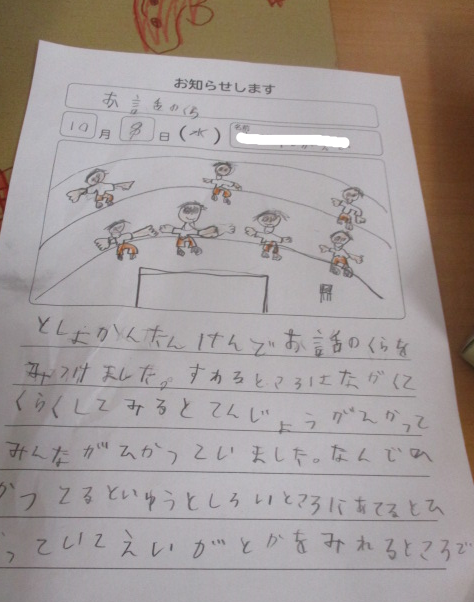 お知らせします
お話のくら
10月9日(水)
名前
としょかんたんけんでお話のくらを
みつけました。すわるところはながくて
くらくしてみるとてんじょうがひかって
みんながひかっていました。なんでひ
かつてるといゆうとしろいところにあてるとひ
っていてえいがとかをみれるところで